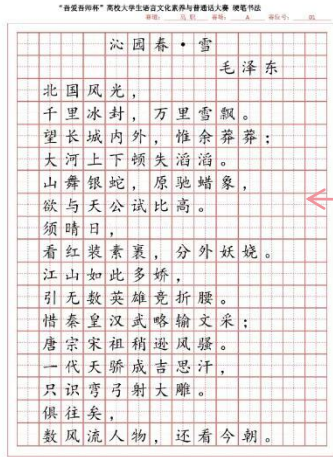 “吾爱吾师杯”高校大学生语言文化素养与普通话大赛 硬笔书法
沁园春·雪
毛泽东
北国风光，
千里冰封，万里雪飘。
望长城内外，惟余莽莽；
大河上下顿失滔滔。
山舞银蛇，原驰蜡象，
欲与天公试比高。
须晴日，
看红装素裹，分外妖娆。
江山如此多娇，
引无数英雄竞折腰。
惜秦皇汉武略输文采；
唐宗宋祖稍逊风骚。
一代天骄成吉思汗，
只识弯弓射大雕。
俱往矣，
数风流人物，还看今朝。